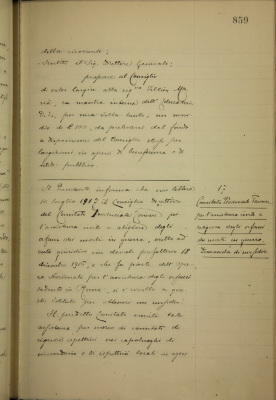 859
della vicenda;
Sentito il Sig. Direttore Generale;
propone al Consiglio
di voler largire alla sig.na
ria, ex maestra interna dell'
per una volta tanto, un
dio di L. 100, da prelevarsi dal fondo
a disposizione del Consiglio stesso per
largizioni in opere di beneficenza e di
utilità pubblica
Il Presidente informa che con lettera
luglio 1917 il Consiglio direttivo
del Comitato Provinciale per
l'assistenza civile e religiosa degli
orfani dei morti in guerra, eretto ad
ente giuridico con decreto prefettizio 18
dicembre 1915, e che fa parte dell'opera
Nazionale per l'assistenza degli orfani
sedente in Roma, si è rivolto a questo
Istituto per ottenere un sussidio.
Il predetto Comitato
per mezzo di comitati di
rispettivi nei capoluoghi di
circondario e di rispettivi locali in ogni
17
Comitato Provinciale
per l'assistenza civile e
religiosa degli orfani
dei morti in guerra.
Domanda di sussidio